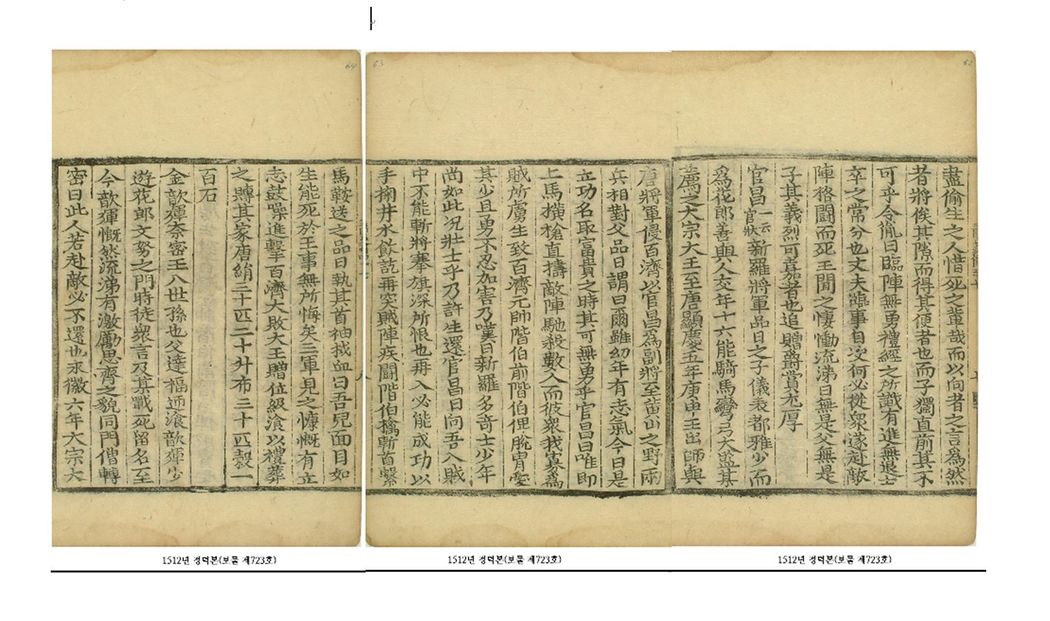 盡偷生之人惜死之輩哉而以向者之言爲然
者將俟其隙而得其便者也而子獨直前其不
可乎令胤曰臨陣無勇禮經之所識有進無退士
卒之常分也丈夫臨事自決何必從衆遂赴敵
陣格鬪而死王聞之悽慟流涕曰無是父無是
子其義烈可嘉者也追贈爵賞尤厚
官昌一云官狀新羅將軍品日之子儀表都雅少而
爲花郎善與人交年十六能騎馬彎弓大監某
薦之大宗大王至唐顯慶五年庚申王出師與
唐將軍侵百濟以官昌爲副將至黃山之野兩
兵相對父品日謂曰爾雖幼年有志氣今日是
立功名取富貴之時其可無勇乎官昌曰唯即
上馬橫槍直擣敵陣馳殺數人而彼衆我寡爲
賊所虜生致百濟元帥階伯前階伯俾脫胄愛
其少且勇不忍加害乃嘆曰新羅多奇士少年
尚如此況壯士乎乃許生還官昌曰向吾入賊
中不能斬將搴旗深所恨也再入必能成功以
手掬井水飲訖再突賊陣疾鬪階伯擒斬首繫
馬鞍送之品日執其首袖拭血曰吾兒面目如
生能死於王事無所悔矣三軍見之慷慨有立
志鼓噪進擊百濟大敗大王贈位級飡以禮葬
之賻其家唐絹三十匹二十升布三十匹穀一
百石
金歆運奈密王八世孫也父達福迊飡歆運少
遊花郎文努之門時徒衆言及某戰死留名至
今歆運慨然流涕有激勵思齊之貌同門僧轉
密曰此人若赴敵必不還也永徽六年大宗大
64
63
62
1512년 정덕본(보물 제723호)
1512년 정덕본(보물 제723호)
1512년 정덕본(보물 제723호)